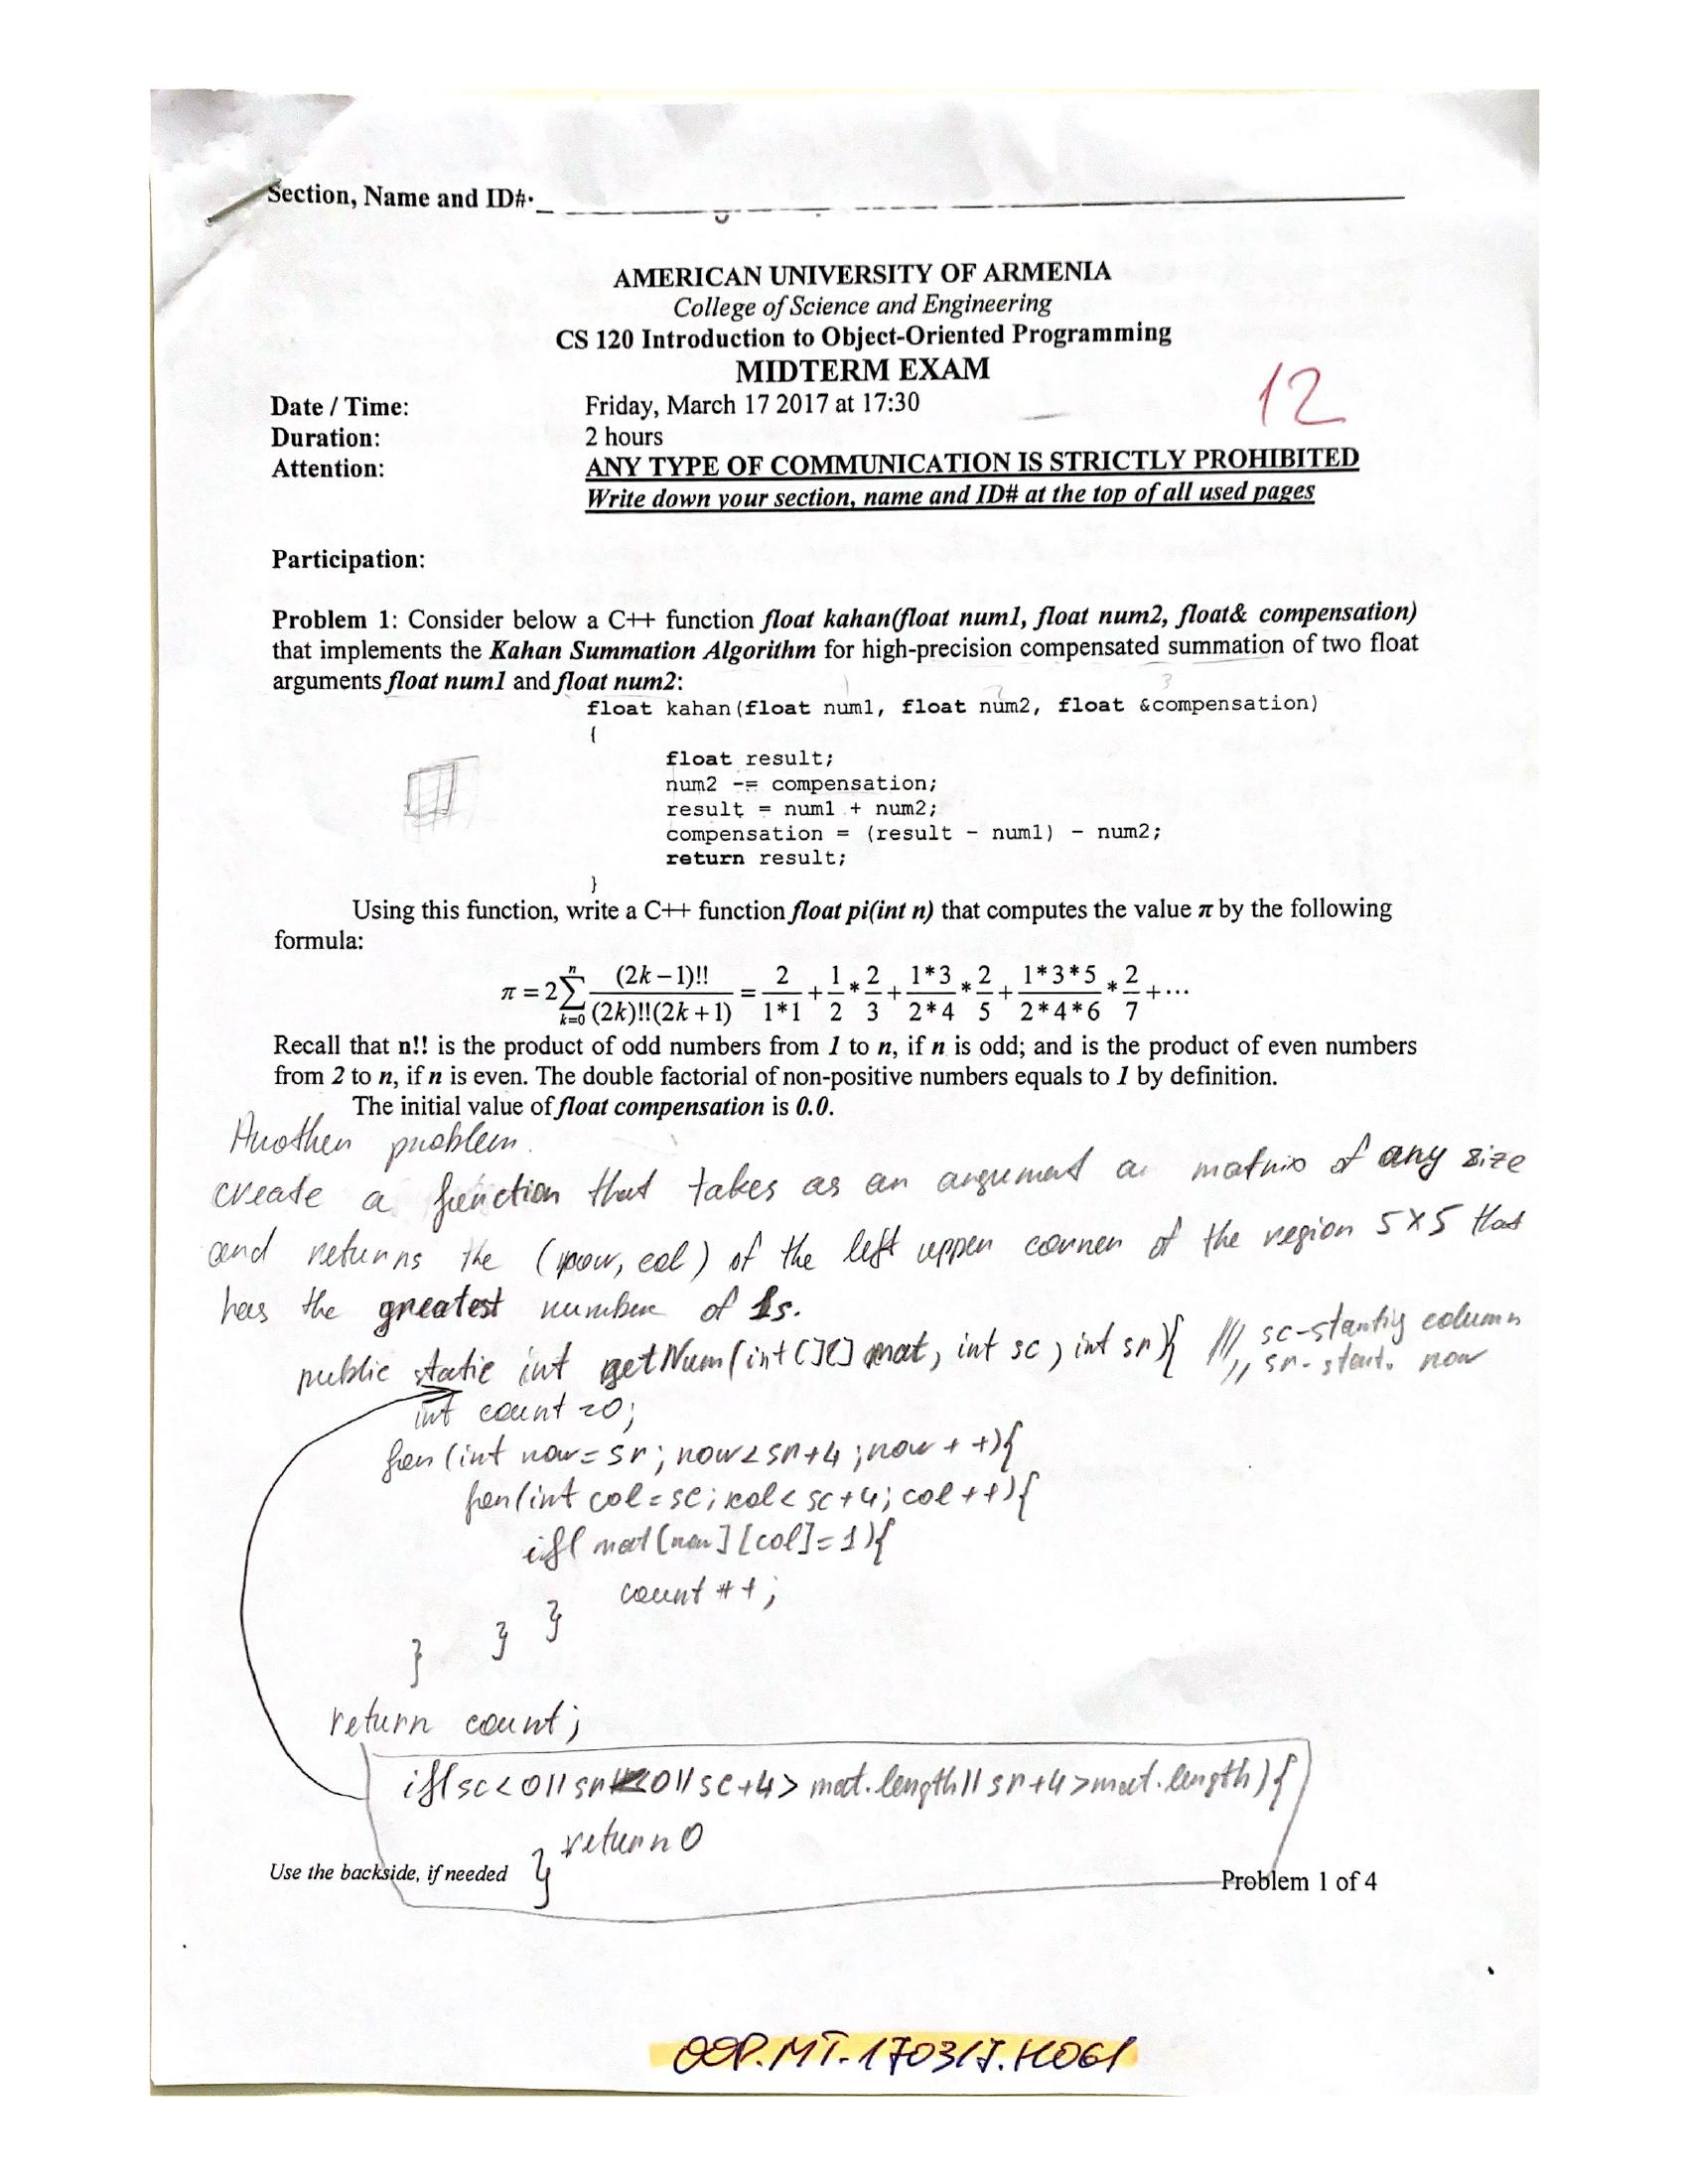 Section, Name and ID#
AMERICAN UNIVERSITY OF ARMENIA
College of Science and Engineering
CS 120 Introduction to Object-Oriented Programming
MIDTERM EXAM
12
Date / Time: Friday, March 17 2017 at 17:30
Duration: 2 hours
Attention: ANY TYPE OF COMMUNICATION IS STRICTLY PROHIBITED
Write down your section, name and ID# at the top of all used pages
Participation:
Problem 1: Consider below a C++ function float kahan(float num1, float num2, float& compensation)
that implements the Kahan Summation Algorithm for high-precision compensated summation of two float
arguments float num1 and float num2:
1 2 3
float kahan(float num1, float num2, float &compensation)
{
float result;
num2 -= compensation;
result = num1 + num2;
compensation = (result - num1) - num2;
return result;
}
Using this function, write a C++ function float pi(int n) that computes the value π by the following
formula:
π = 2 ∑_{k=0}^{n} (2k−1)!! / ((2k)!!(2k+1)) = 2/(1*1) + 1/2 * 2/3 + (1*3)/(2*4) * 2/5 + (1*3*5)/(2*4*6) * 2/7 + ⋯
Recall that n!! is the product of odd numbers from 1 to n, if n is odd; and is the product of even numbers
from 2 to n, if n is even. The double factorial of non-positive numbers equals to 1 by definition.
The initial value of float compensation is 0.0.
Another problem.
create a function that takes as an argument a matrix of any size
and returns the (row, col) of the left upper corner of the region 5x5 that
has the greatest number of 1s.
public static int getNum(int[][] mat, int sc, int sr){ /// sc-starting column
// sr-start. row
int count = 0;
for(int row = sr; row < sr+4; row++){
for(int col = sc; col < sc+4; col++){
if( mat[row][col]=1){
count++;
}
}
}
return count;
if(sc<0||sr<0||sc+4>mat.length||sr+4>mat.length){
return 0
}
Use the backside, if needed
Problem 1 of 4
OOP.MT.170317.H061